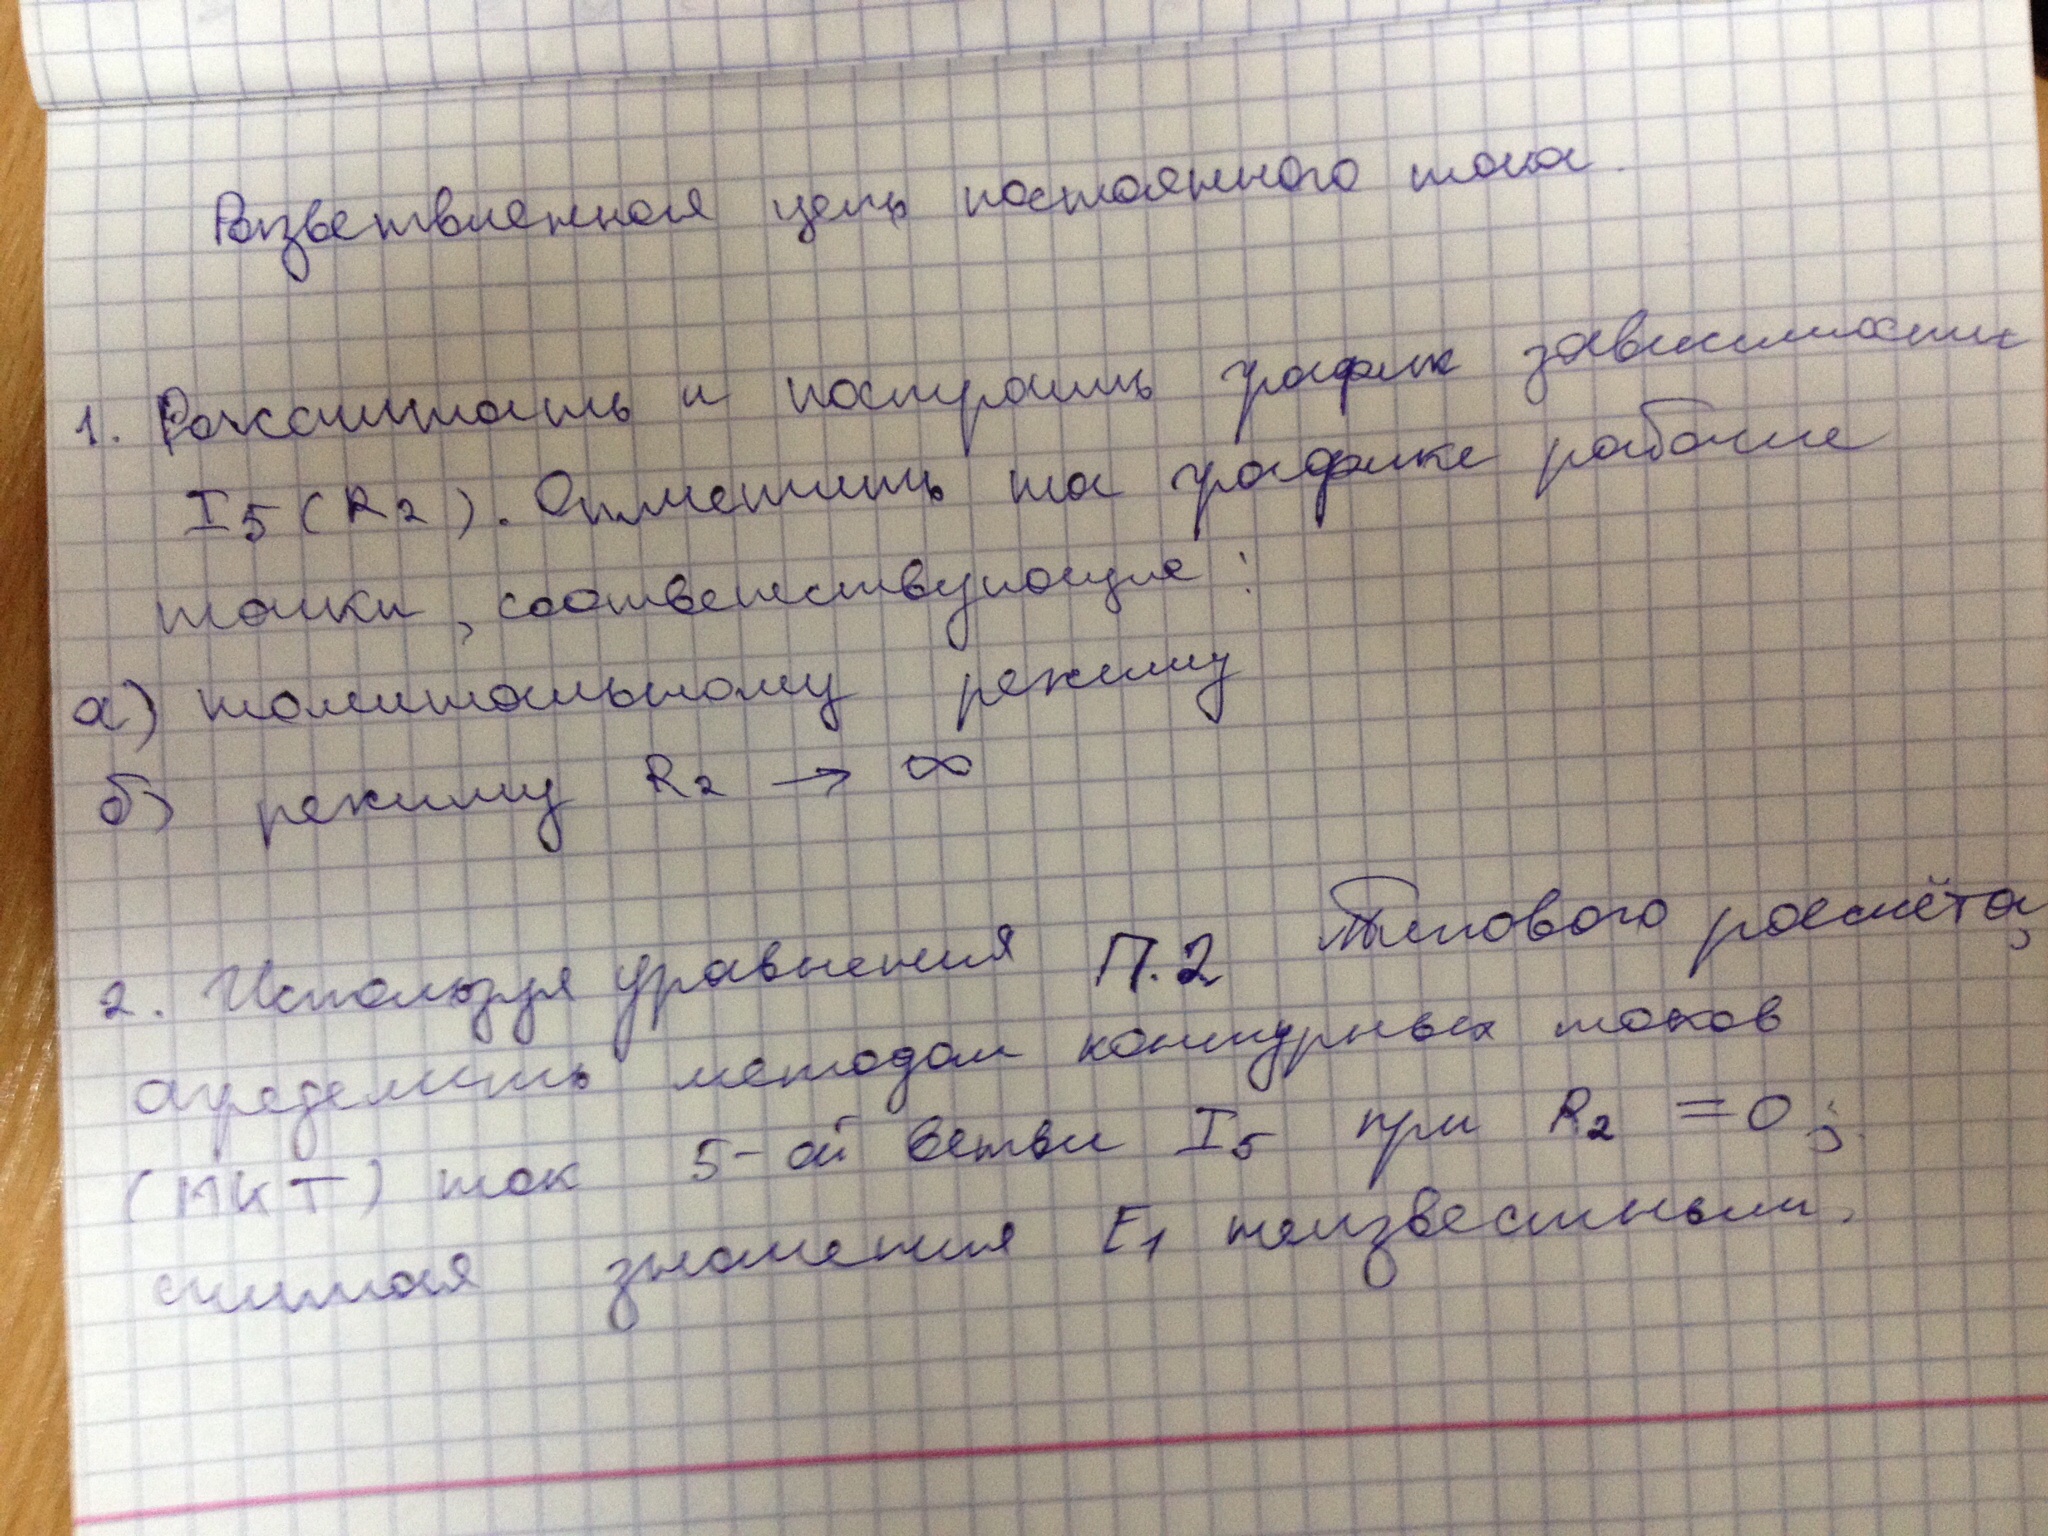 Разветвленная цепь постоянного тока.
1. Рассчитать и построить график зависимости
I5 (R2). Отметить на графике рабочие
точки, соответствующие:
а) номинальному режиму
б) режиму R2 → ∞
2. Используя уравнения П.2 Типового расчёта,
определить методом контурных токов
(МКТ) ток 5-ой ветви I5 при R2 = 0;
считая значения E1 неизвестным.